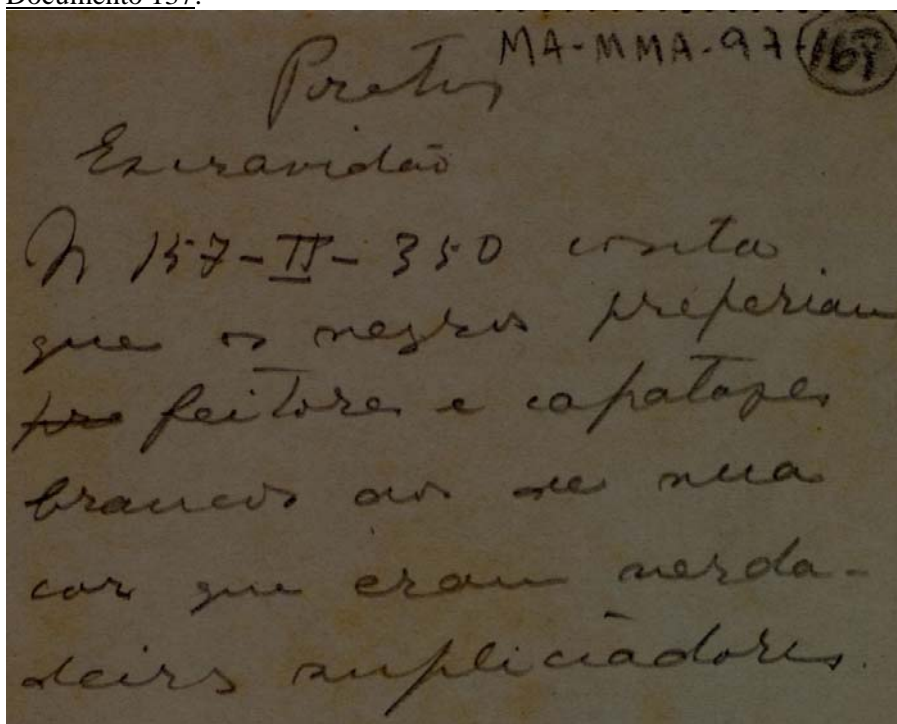 Documento 157:
MA-MMA-97-169
Pretos
Escravidão
N 157-II-350 conta
que os negros preferiam
pre feitores e capatazes
brancos aos de sua
cor que eram verda-
deiros supliciadores.